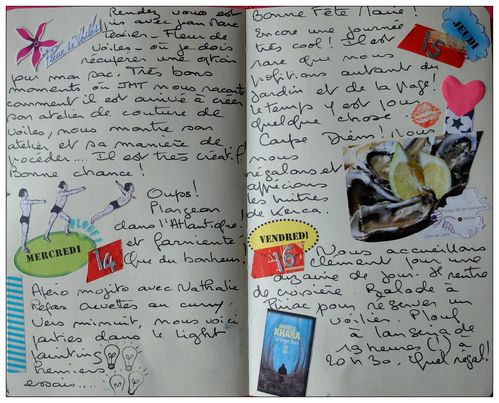 Rendez vous est
pris avec Jean Marc
Fleur de Voiles
Tessier - Fleur de
voiles - où je dois
récupérer une option
pour mon sac. Très bons
moments où JMT nous raconte
comment il est arrivé à créer
son atelier de couture de
voiles, nous montre son
atelier et sa manière de
procéder.... Il est très créatif.
Bonne chance!
Oups!
Plongeon
dans l'Atlantique!
et farniente.
Que du bonheur!
PLOUF!
MERCREDI
14
Apéro mojito avec Nathalie
Repas crevettes au curry.
Vers minuit, nous voici
parties dans le light
painting
Premiers
essais....
Bonne Fête Marie!
Encore une journée
très cool! Il est
rare que nous
profitions autant du
jardin et de la plage!
Le temps y est pour
quelque chose
JEUDI
15
Carpe Diem! Nous
nous
régalons et
apprécions
les huîtres
de Kerca.
VENDREDI
16
Nous accueillons
Clément pour une
dizaine de jour. Il rentre
de croisière Balade à
Piriac pour réserver un
voilier Plouf
à Lanseria de
19 heures (!) à
20 h 30. Quel régal!
KHARA